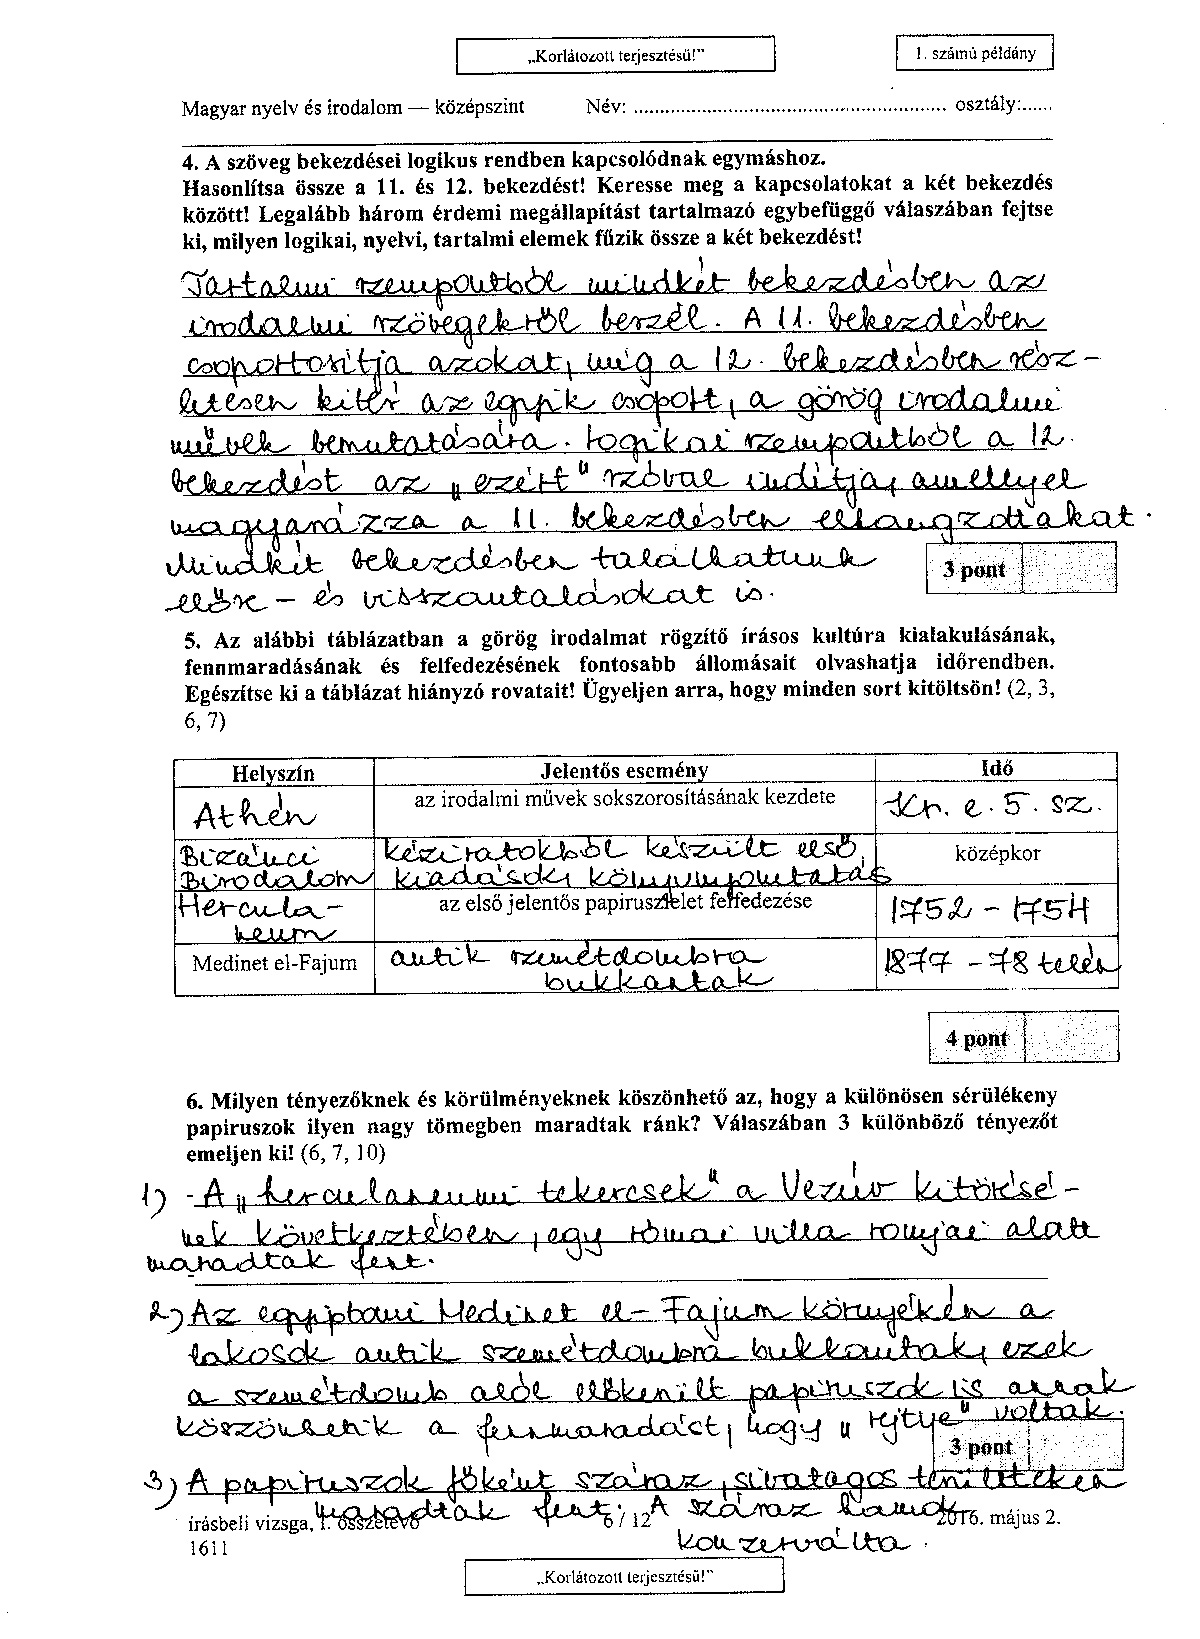 „Korlátozott terjesztésű!”
1. számú példány
Magyar nyelv és irodalom — középszint Név: ........................................................... osztály:......
4. A szöveg bekezdései logikus rendben kapcsolódnak egymáshoz.
Hasonlítsa össze a 11. és 12. bekezdést! Keresse meg a kapcsolatokat a két bekezdés
között! Legalább három érdemi megállapítást tartalmazó egybefüggő válaszában fejtse
ki, milyen logikai, nyelvi, tartalmi elemek fűzik össze a két bekezdést!
Tartalmi szempontból mindkét bekezdésben az
irodalmi szövegekről beszél. A 11. bekezdésben
csoportosítja azokat, míg a 12. bekezdésben rész-
letesen kitér az egyik csoport, a görög irodalmi
művek bemutatására. Logikai szempontból a 12.
bekezdést az „ezért" szóval indítja, amellyel
magyarázza a 11. bekezdésben elhangzottakat.
Mindkét bekezdésben találhatunk
előre - és visszautalásokat is.
3 pont
5. Az alábbi táblázatban a görög irodalmat rögzítő írásos kultúra kialakulásának,
fennmaradásának és felfedezésének fontosabb állomásait olvashatja időrendben.
Egészítse ki a táblázat hiányzó rovatait! Ügyeljen arra, hogy minden sort kitöltsön! (2, 3,
6, 7)
Helyszín Jelentős esemény Idő
Athén az irodalmi művek sokszorosításának kezdete Kr. e. 5. sz.
Bizánci kéziratokból készült első középkor
Birodalom kiadások, könyvnyomtatás
Hercula- az első jelentős papiruszlelet felfedezése 1752 - 1754
neum
Medinet el-Fajum antik szemétdombra 1877 - 78 telén
bukkantak
4 pont
6. Milyen tényezőknek és körülményeknek köszönhető az, hogy a különösen sérülékeny
papiruszok ilyen nagy tömegben maradtak ránk? Válaszában 3 különböző tényezőt
emeljen ki! (6, 7, 10)
1) - A „herculaneumi tekercsek" a Vezúv kitörésé-
nek következtében, egy római villa romjai alatt
maradtak fent.
2) Az egyiptomi Medinet el-Fajum környékén a
lakosok antik szemétdombra bukkantak, ezek
a szemétdomb alól előkerült papiruszok is annak
köszönhetik a fennmaradást, hogy „rejtve" voltak.
3 pont
3) A papiruszok főként száraz, sivatagos területeken
maradtak fent. A száraz homok
írásbeli vizsga, I. összetevő 6 / 12 2016. május 2.
1611
konzerválta.
„Korlátozott terjesztésű!”